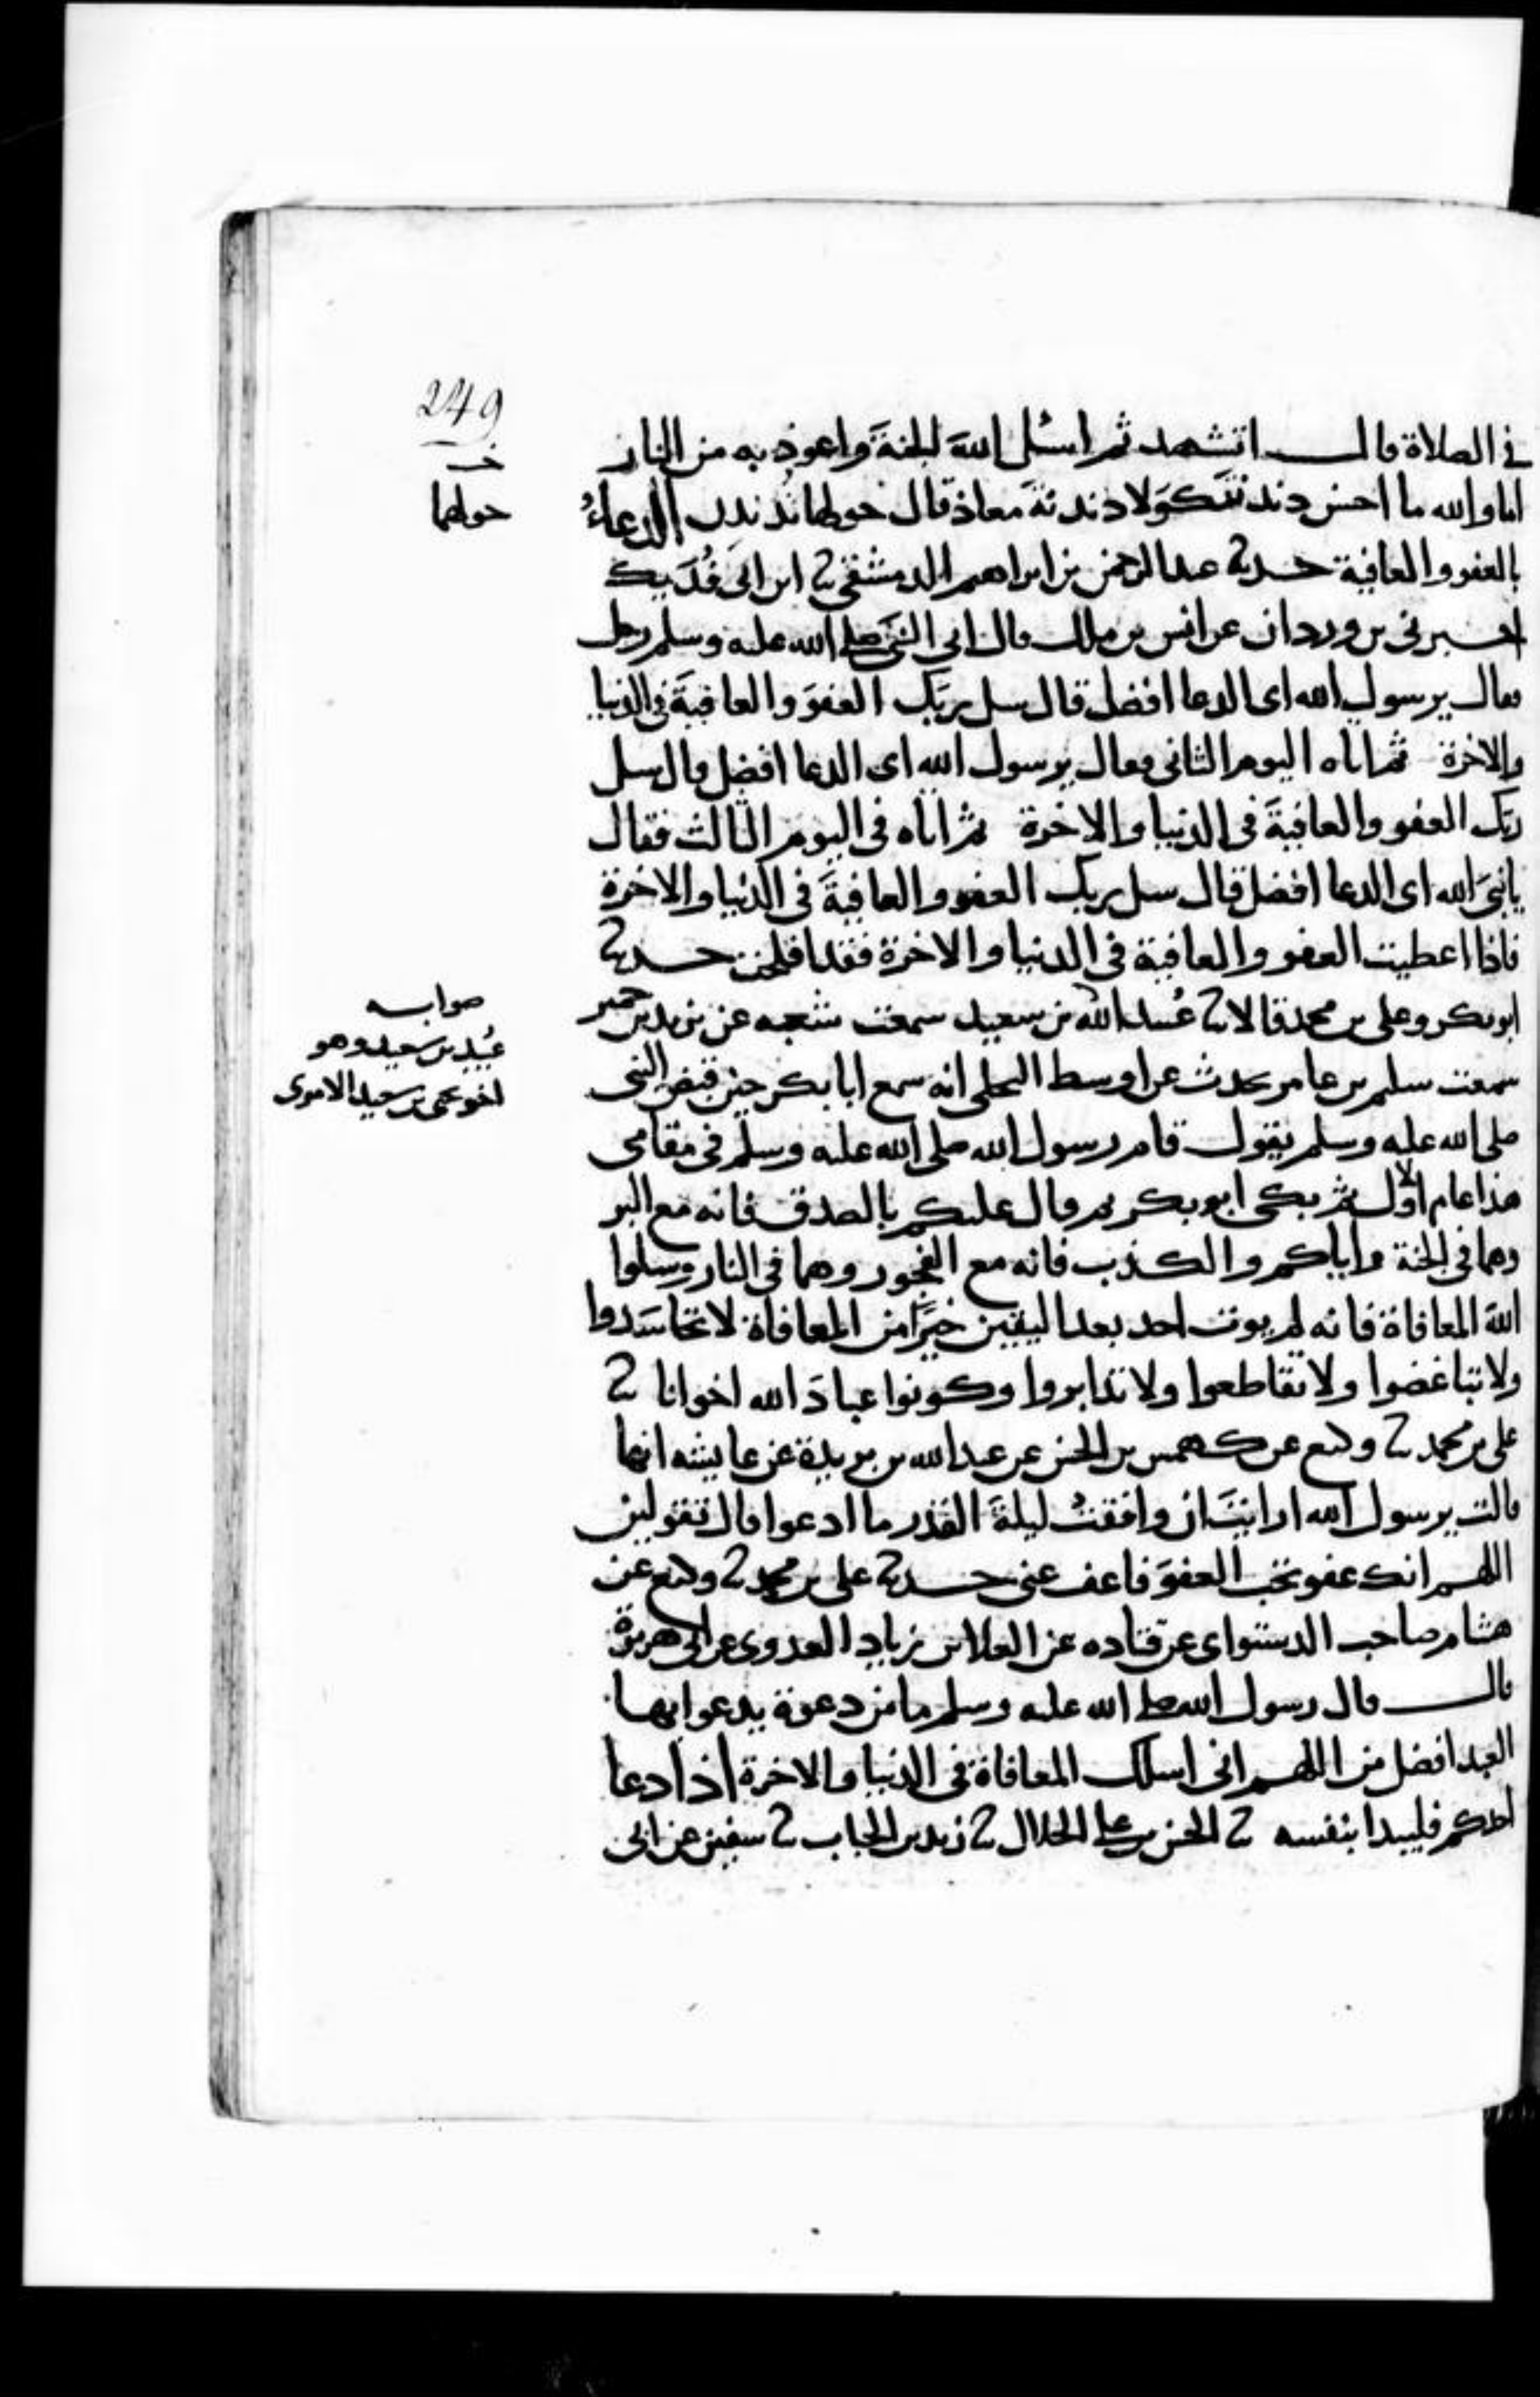 249
في الصلاة قال اتشهد ثم اسئل اللهَ الجنةَ واعوذ به من النار
اما والله ما احسن دندنتَكَ وَلا دندنةَ معاذ قال حولها نُدَندِن الدعاءُ
خـ
حولهما
بالعفو والعافية حدثنا عبد الرحمن بن ابراهيم الدمشقي ثنا ابن ابي فُدَيك
اخبرني بن وردان عن انس بن ملك قال اتى النبيَ صلى الله عليه وسلم رجل
فقال يرسول الله اى الدعا افضل قال سل ربَك العفوَ والعافيةَ في الدنيا
والاخرة ثم اتاه اليوم الثاني فقال يرسول الله اى الدعا افضل قال سل
ربك العفو والعافيةَ في الدنيا والاخرة ثم اتاه في اليوم الثالث فقال
يا نبيَ الله اى الدعا افضل قال سل ربك العفو والعافيةَ في الدنيا والاخرة
فاذا اعطيت العفو والعافية في الدنيا والاخرة فقد افلحت حدثنا
ابو بكر وعلى بن محمد قالا ثنا عُبيد الله بن سعيد سمعت شعبه عن يزيد بن خمير
صوابه
عُبيد بن سعيد وهو
اخو يحيى بن سعيد الاموى
سمعت سليم بن عامر يحدث عن اوسط البجلي انه سمع ابا بكر حين قبض النبي
صلى الله عليه وسلم يقول قام رسول الله صلى الله عليه وسلم في مقامى
هذا عام الاول ثم بكى ابو بكر ثم قال عليكم بالصدق فانه مع البر
وهما في الجنة واياكم والكذب فانه مع الفجور وهما في النار وسلوا
اللهَ المعافاة فانه لم يوت احد بعد اليقين خيرًا من المعافاة لا تحاسَدوا
ولا تباغضوا ولا تقاطعوا ولا تدابروا وكونوا عبادَ الله اخوانا ثنا
على بن محمد ثنا وكيع عن كهمس بن الحسن عن عبد الله بن بريدة عن عايشه انها
قالت يرسول الله ارايتَ ان وافقتُ ليلةَ القدر ما ادعوا قال تقولين
اللهم انك عفو تحب العفوَ فاعف عني حدثنا على بن محمد ثنا وكيع عن
هشام صاحب الدستواى عن قتاده عن العلا بن زياد العدوى عن ابى هريرة
قال قال رسول الله صلى الله عليه وسلم ما من دعوة يدعوا بها
العبد افضل من اللهم انى اسلك المعافاة في الدنيا والاخرة اذا دعا
احدكم فليبدا بنفسه ثنا الحسن بن على الخلال ثنا زيد بن الحباب ثنا سفين عن ابى